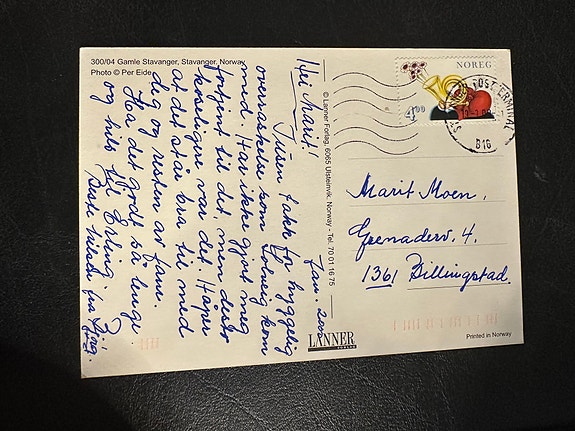 300/04 Gamle Stavanger, Stavanger, Norway
Photo © Per Eide
Jan. 2002
Hei Marit!
Tusen takk for hyggelig
overraskelse som Solveig kom
med. Har ikke gjort meg
fortjent til det, men desto
koseligere var det. Håper
at det står bra til med
deg og resten av fam.
Ha det godt så lenge
og hils Erling.
Beste hilsen fra
© Lanner Forlag, 6065 Ulsteinvik, Norway - Tel. 70 01 16 75
LANNER
FORLAG
NOREG
4,00
POSTTERMINAL
B16
Marit Moen,
Grenaderv. 4.
1361 Billingstad.
Printed in Norway